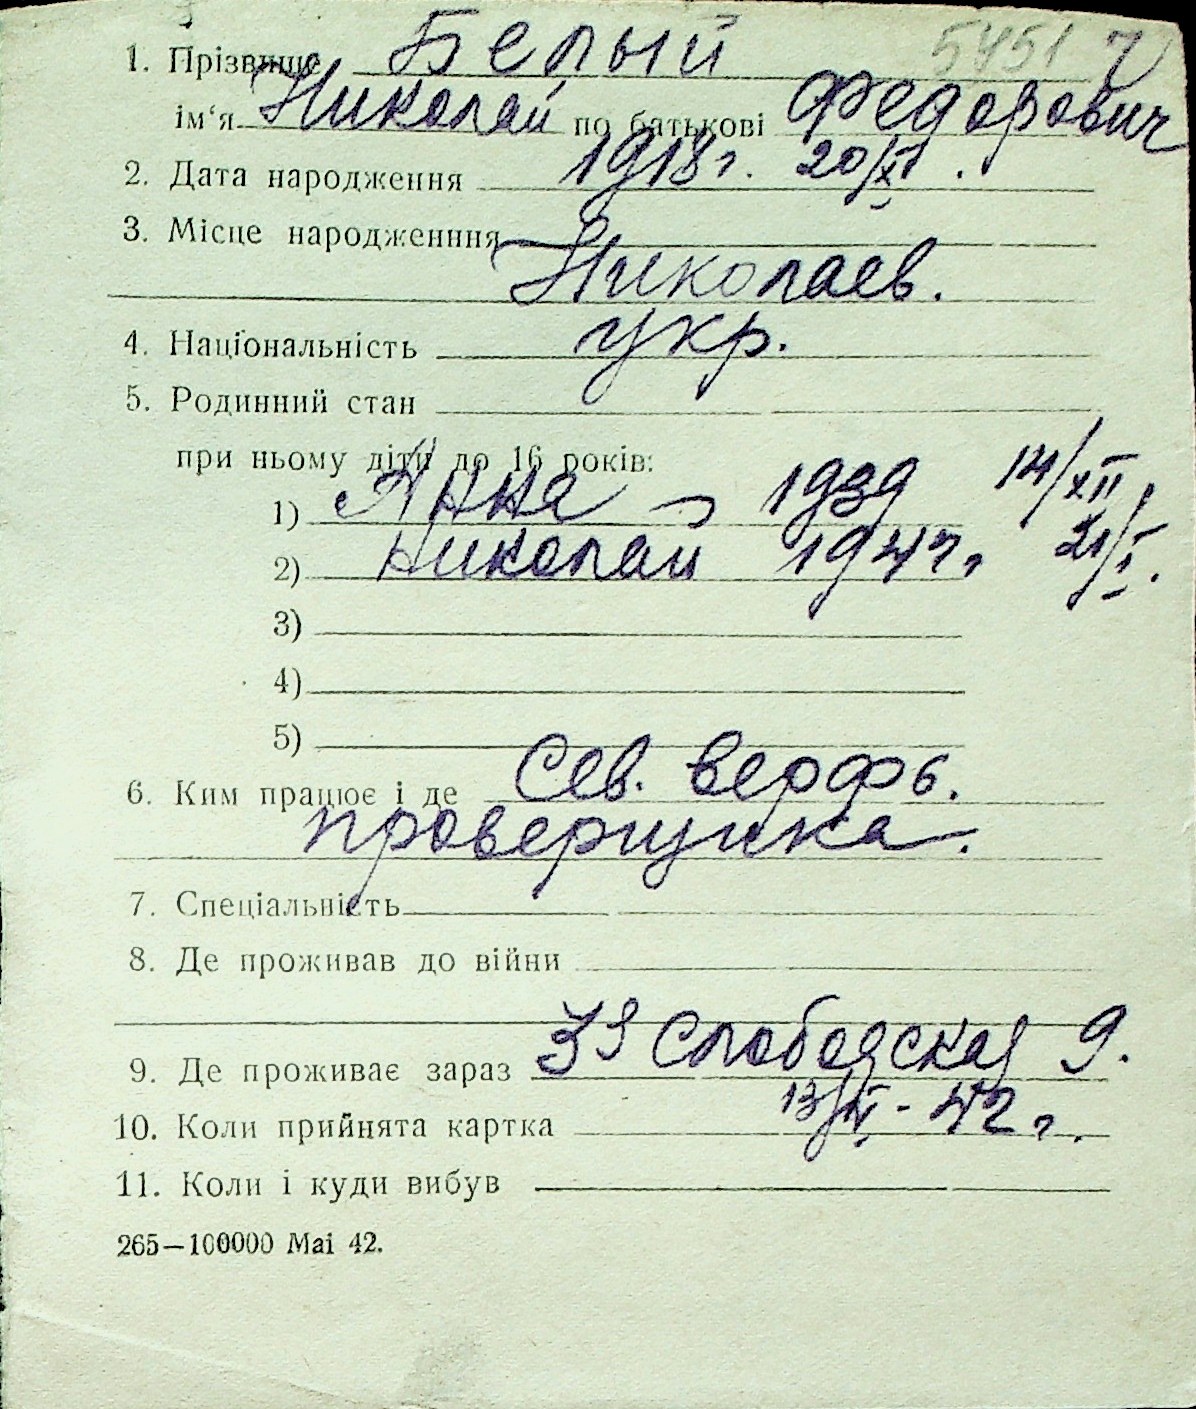 5451 7
1. Прізвище Белый
ім‘я Николай по батькові Федорович
2. Дата народження 1918г. 20/XI.
3. Місце народженння
Николаев.
4. Національність укр.
5. Родинний стан
при ньому діти до 16 років:
1) Анна 1939 14/XII.
2) Николай 1941г. 21/I.
3)
4)
5)
6. Ким працює і де Сев. верфь.
проверщика.
7. Спеціальність
8. Де проживав до війни
9. Де проживає зараз 39 Слободская 9.
10. Коли прийнята картка 13/IV-42г.
11. Коли і куди вибув
265—100000 Mai 42.